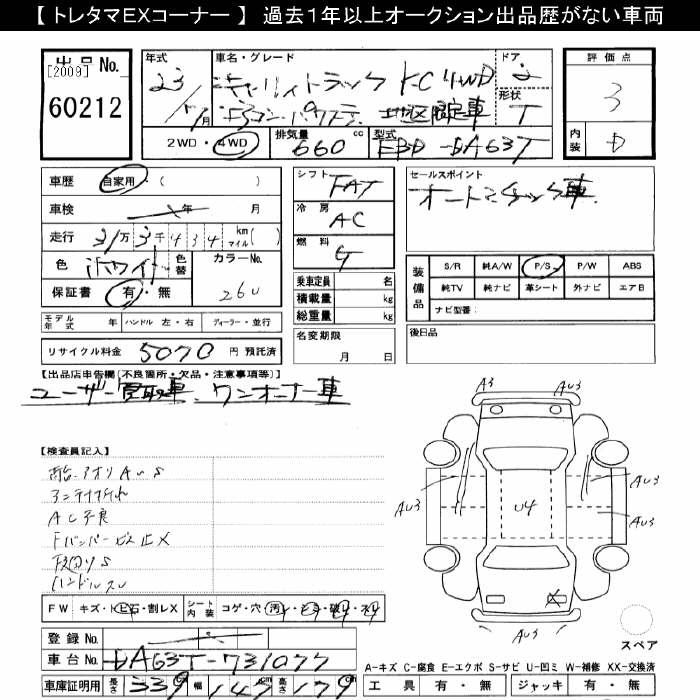 【 トレタマEXコーナー 】 過去１年以上オークション出品歴がない車両
出 品 No.
[2009]
60212
年式
23/7月
車名・グレード
キャリィトラック KC 4WD
エアコン・パワステ 地区限定車
ドア
2
形状
T
2WD・4WD
排気量
660 cc
型式
EBD-DA63T
評 価 点
3
内装
D
車歴 自家用・( )
車検 年 月
走行 31万3千434 km マイル( )
色 ホワイト 色替 カラーNo. 26U
保証書 有・無
モデル年式 年 ハンドル 左・右 ディーラー・並行
リサイクル料金 5070 円 預託済
シフト
FAT
冷房
AC
燃料
G
乗車定員 名
積載量 kg
総重量 kg
名変期限
月 日
セールスポイント
オートマチック車
装備品
S/R 純A/W P/S P/W ABS
純TV 純ナビ 革シート 外ナビ エアB
ナビ型番:
後日品
【出品店申告欄(不良箇所・欠品・注意事項等)】
ユーザー買取車、ワンオーナー車
【検査員記入】
荷台アオリAUS
アンテナ折れ
AC不良
Fバンパービス止X
下回りS
ハンドルスレ
A3
AU3
AU3
AU3
U4
AU3
AU3
X
AU3
スペア
FW キズ・ヒ石・割レX シート内装 コゲ・穴・汚レ・シミ・破レ・スレ
登録 No.
車台 No. DA63T-731077
車庫証明用 長さ 339 幅 147 高さ 179
A-キズ C-腐食 E-エクボ S-サビ U-凹ミ W-補修 XX-交換済
工 具 有・無 ジャッキ 有・無